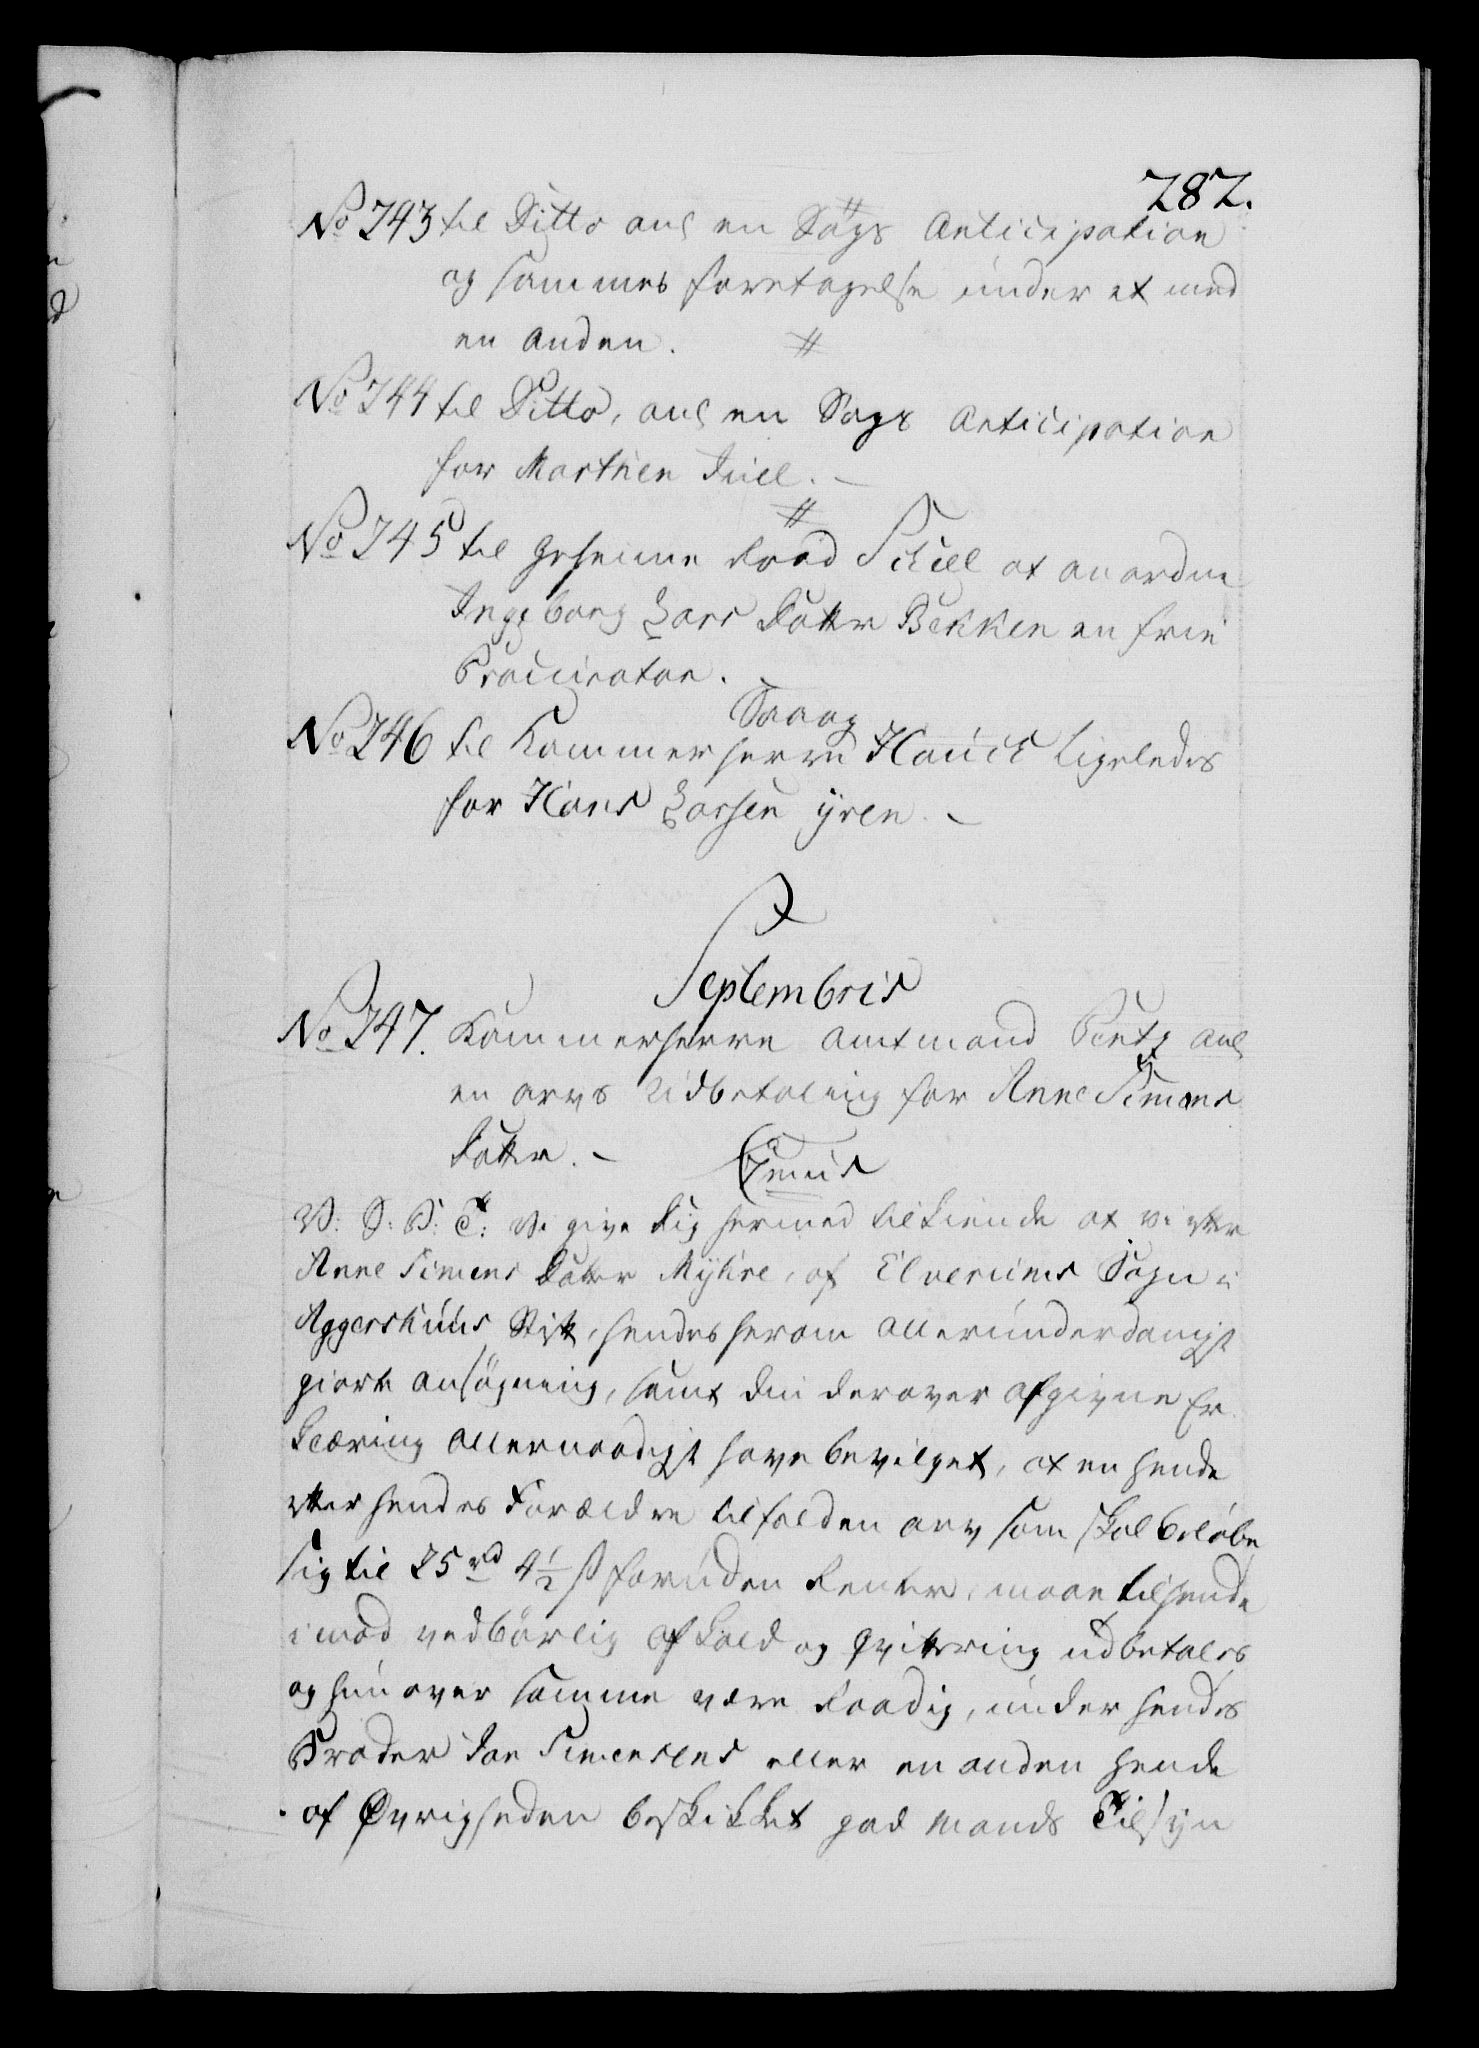 282.
No 743 til Ditto anl en Sags Anticipation
og sammes foretagelse under et med
en anden.
No 744 til Ditto, anl en Sags Anticipation
for Marthen Juel. -
No 745 til geheime Raad Schiell at anordne
Ingeborg Lars Datter Bekken en frie
Procurator.
No 746 til Kammerherre Hauch ligeledes
for Hans Larsen -
Septembris
No 747. Kammerherre Amtmand Pentz anl
en arvs Udbetaling for Anne Simens
Datter. -
V: S: P: T: Vi give dig hermed tilkiende at vi efter
Anne Simens Datter Myhre, af Elverums Sogn i
Aggershuus Stift, hendes herom allerunderdanigst
giorte ansøgning, samt din derover afgivne Er
klæring allernaadigst have bevilget, at en hende
efter hendes Forældre tilfalden arv som skal beløbe
sig til 25 rd 4½ ß foruden Renter, maae til hende
imod vedbørlig afkald og qvittering udbetales
og hun over samme være Raadig, under hendes
Broder Jon Simensens eller en anden hende
af Øvrigheden beskikket god Mands Tilsyn